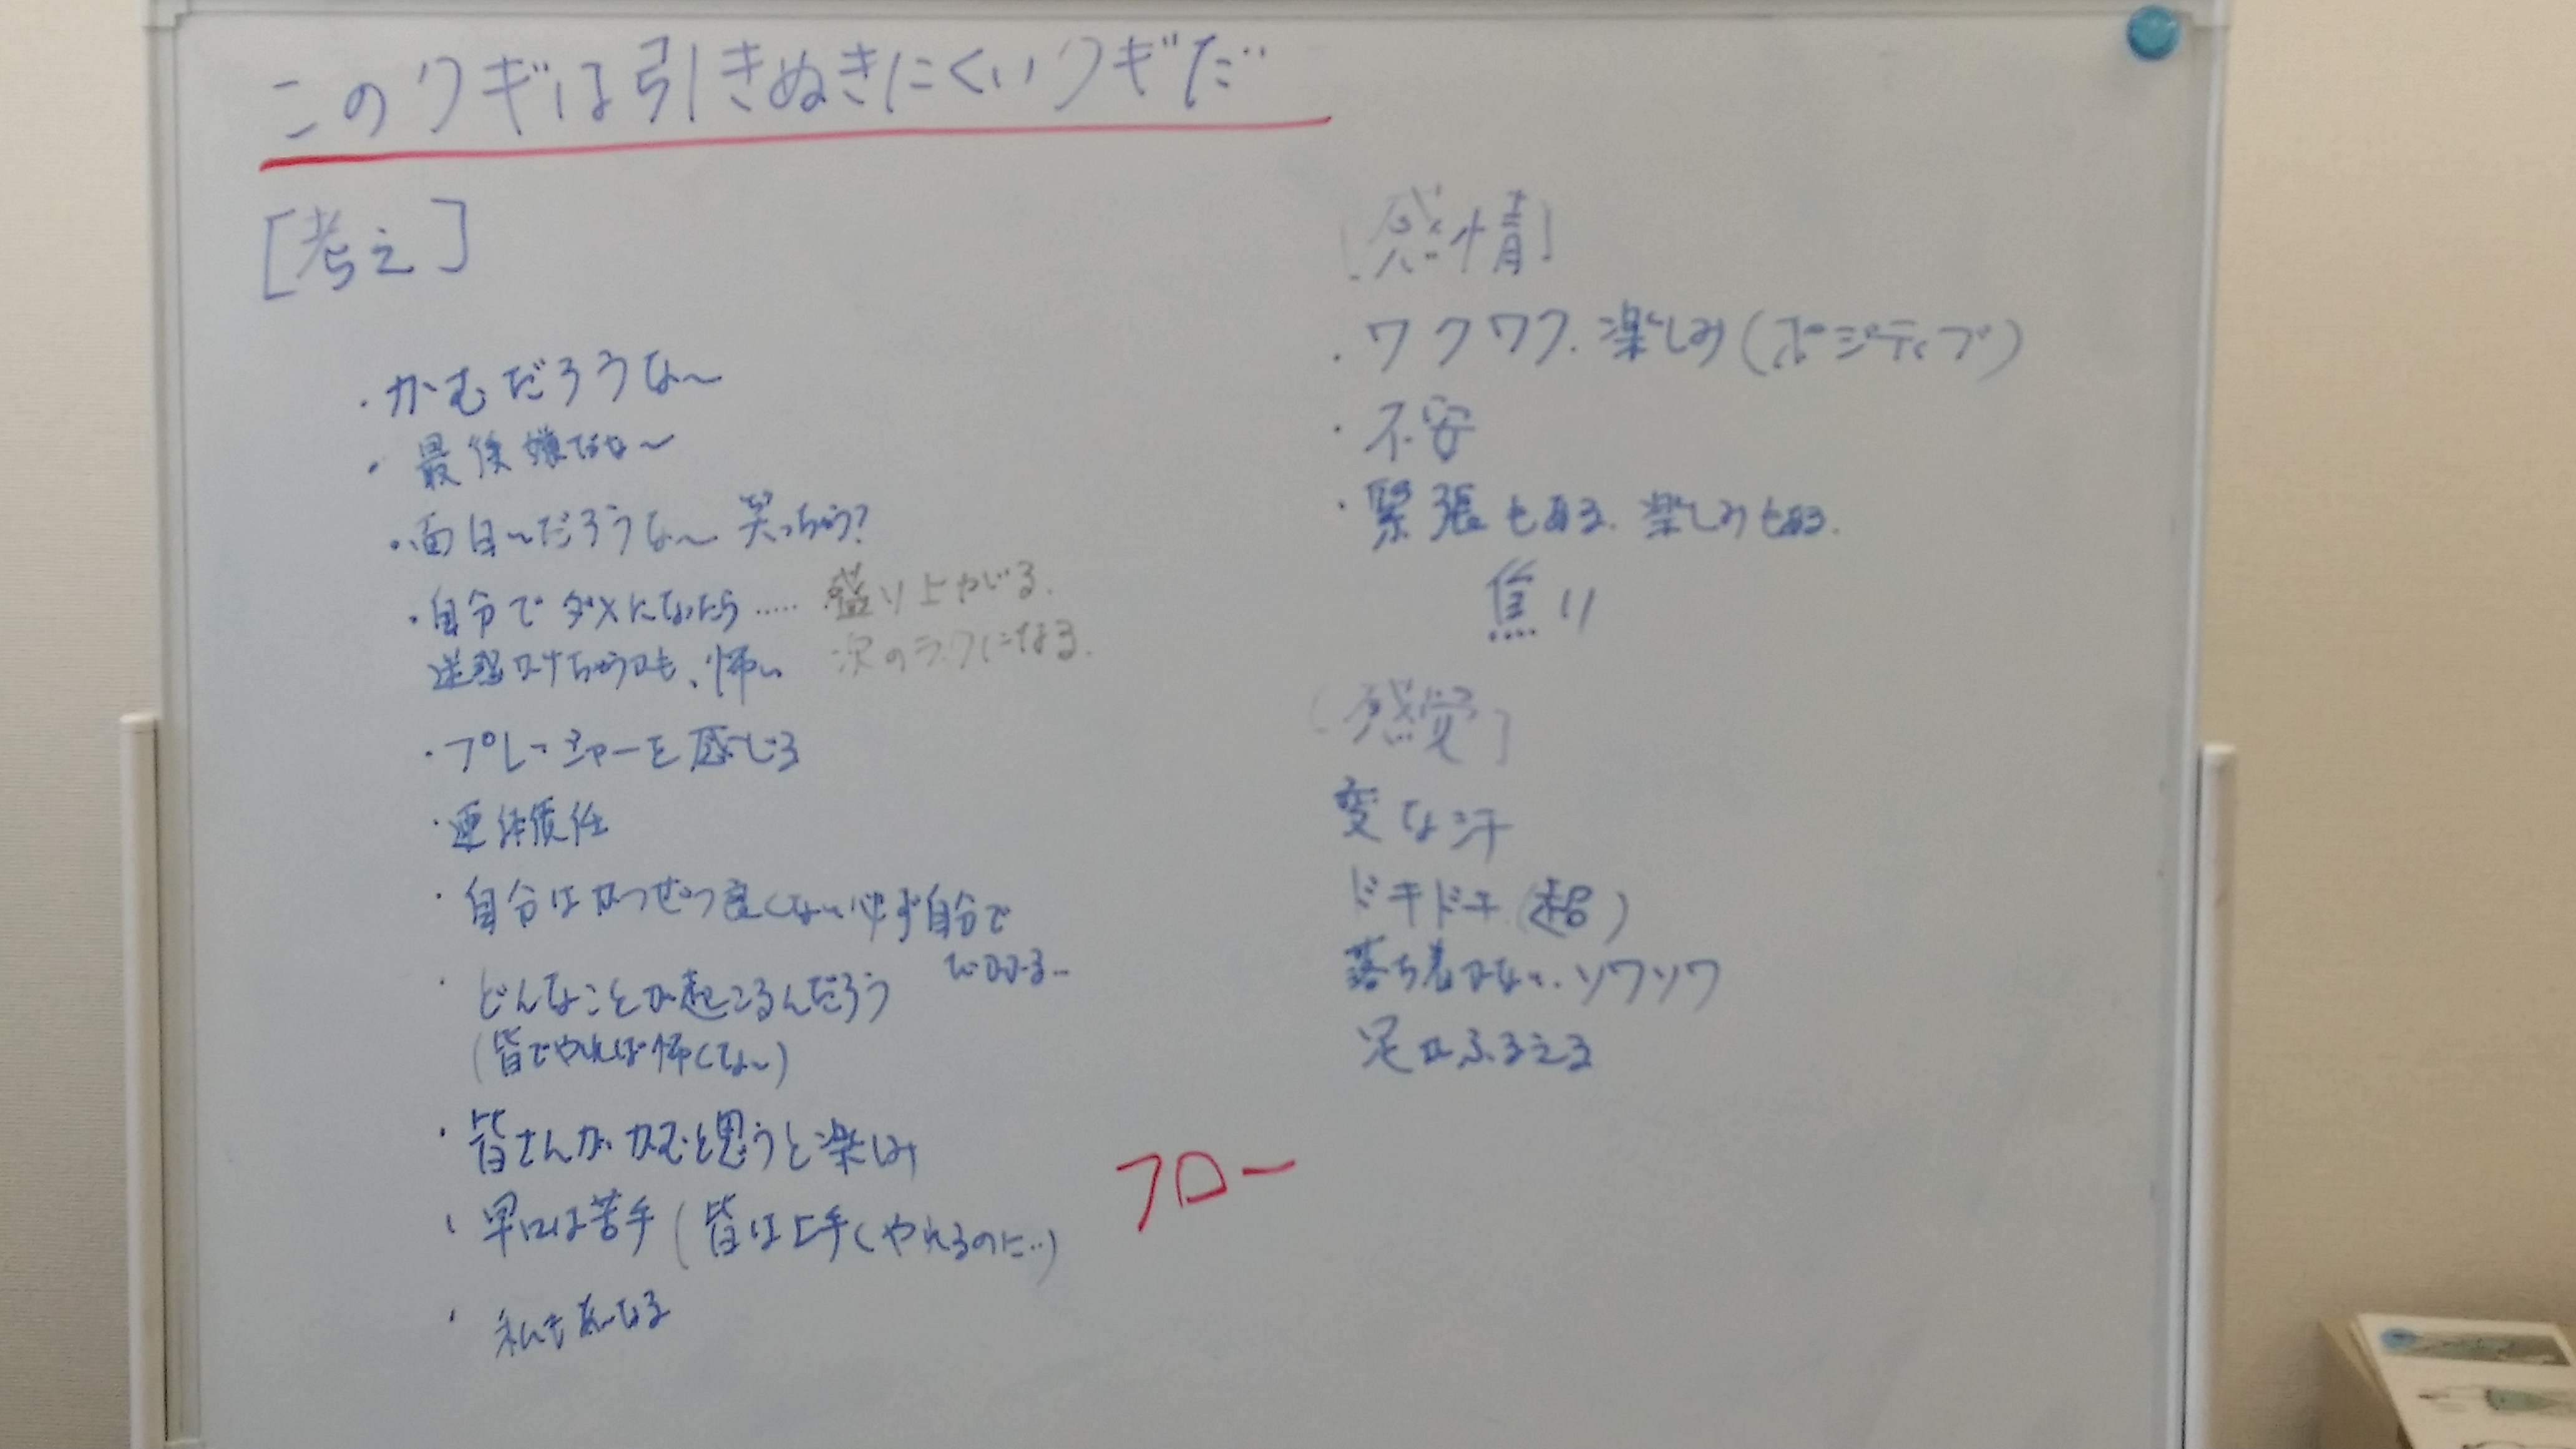 このクギは引きぬきにくいクギだ
[考え]
・かむだろうな〜
・最後嫌だな〜
・面白いだろうな〜 笑っちゃう?
・自分でダメになったら…… 盛り上がる.
迷惑かけちゃうかも、怖い 次のラクになる.
・プレッシャーを感じる
・連体責任
・自分はかつぜつ良くない必ず自分で
・どんなことが起こるんだろう
(皆でやれば怖くない)
・皆さんがかむと思うと楽しみ
・早口は苦手(皆は上手くやれるのに‥)
・私も
[感情]
・ワクワク.楽しみ(ポジティブ)
・不安
・緊張もある.楽しみもある.
焦り
[感覚]
変な汗
ドキドキ(超)
落ち着かない.ソワソワ
足がふるえる
フロー